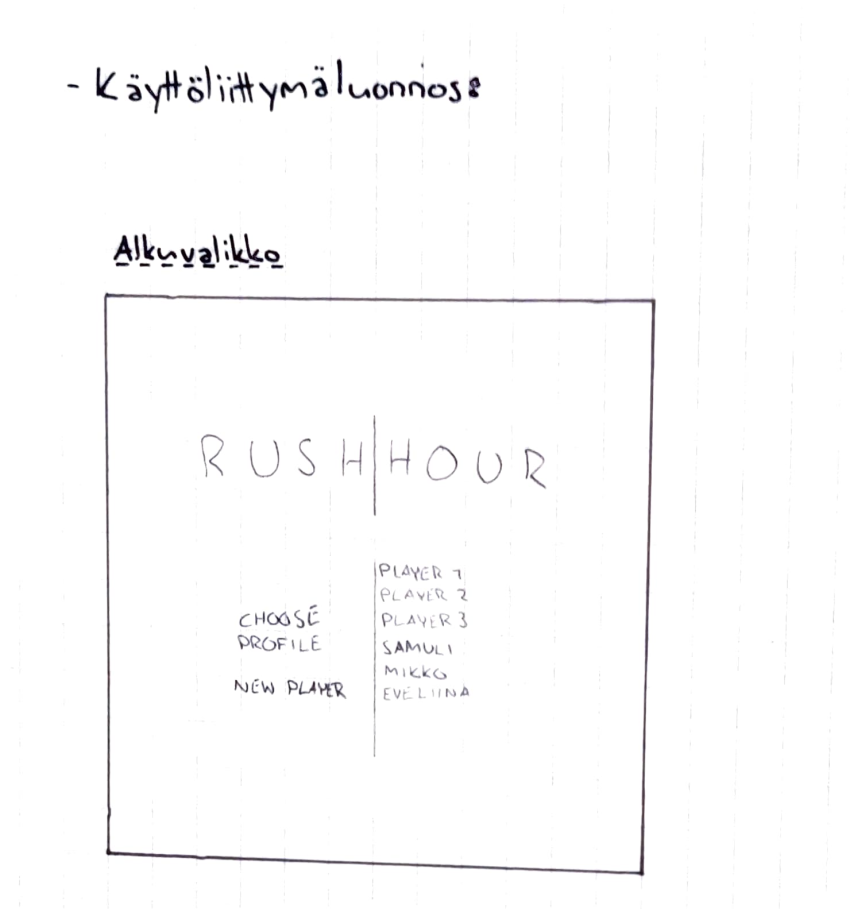 - Käyttöliittymäluonnos:
Alkuvalikko
RUSH|HOUR
CHOOSE
PROFILE
NEW PLAYER
PLAYER 1
PLAYER 2
PLAYER 3
SAMULI
MIKKO
EVELIINA